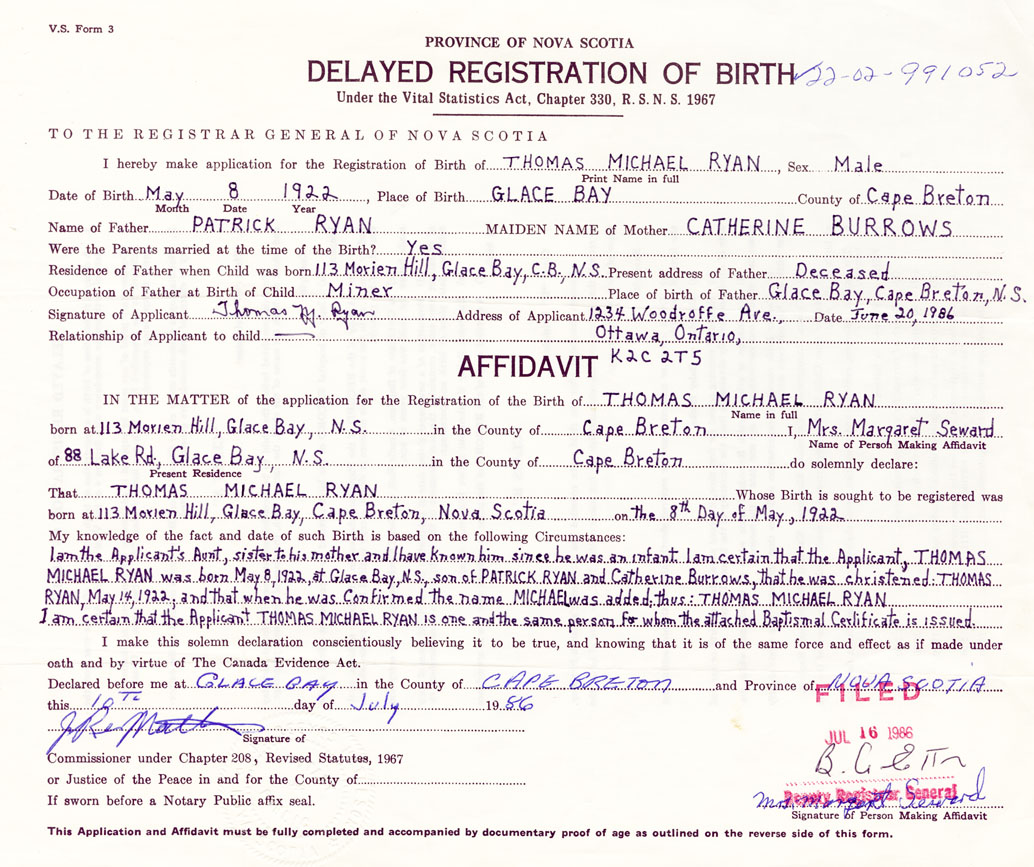 V.S. Form 3
PROVINCE OF NOVA SCOTIA
DELAYED REGISTRATION OF BIRTH 22-02-991052
Under the Vital Statistics Act, Chapter 330, R.S.N.S. 1967
TO THE REGISTRAR GENERAL OF NOVA SCOTIA
I hereby make application for the Registration of Birth of THOMAS MICHAEL RYAN, Sex Male
Print Name in full
Date of Birth May 8 1922, Place of Birth GLACE BAY County of Cape Breton
Month Date Year
Name of Father PATRICK RYAN MAIDEN NAME of Mother CATHERINE BURROWS
Were the Parents married at the time of the Birth? Yes
Residence of Father when Child was born 113 Morien Hill, Glace Bay, C.B., N.S. Present address of Father Deceased
Occupation of Father at Birth of Child Miner Place of birth of Father Glace Bay, Cape Breton, N.S.
Signature of Applicant Thomas M. Ryan Address of Applicant 1234 Woodroffe Ave., Date June 20, 1986
Relationship of Applicant to child — Ottawa, Ontario,
AFFIDAVIT K2C 2T5
IN THE MATTER of the application for the Registration of the Birth of THOMAS MICHAEL RYAN
Name in full
born at 113 Morien Hill, Glace Bay, N.S. in the County of Cape Breton I, Mrs. Margaret Seward
Name of Person Making Affidavit
of 88 Lake Rd., Glace Bay, N.S. in the County of Cape Breton do solemnly declare:
Present Residence
That THOMAS MICHAEL RYAN Whose Birth is sought to be registered was
born at 113 Morien Hill, Glace Bay, Cape Breton, Nova Scotia on the 8th Day of May, 1922
My knowledge of the fact and date of such Birth is based on the following Circumstances:
I am the Applicant's Aunt, sister to his mother and I have known him since he was an infant. I am certain that the Applicant, THOMAS
MICHAEL RYAN was born May 8, 1922, at Glace Bay, N.S., son of PATRICK RYAN and Catherine Burrows, that he was christened: THOMAS
RYAN, May 14, 1922; and that when he was Confirmed the name MICHAEL was added; thus: THOMAS MICHAEL RYAN
I am certain that the Applicant THOMAS MICHAEL RYAN is one and the same person for whom the attached Baptismal Certificate is issued.
I make this solemn declaration conscientiously believing it to be true, and knowing that it is of the same force and effect as if made under
oath and by virtue of The Canada Evidence Act.
Declared before me at GLACE BAY in the County of CAPE BRETON and Province of NOVA SCOTIA
FILED
this 10TH day of July 1986
JUL 16 1986
Signature of
Commissioner under Chapter 208, Revised Statutes, 1967
or Justice of the Peace in and for the County of
Deputy Registrar General
If sworn before a Notary Public affix seal.
Mrs. Margaret Seward
Signature of Person Making Affidavit
This Application and Affidavit must be fully completed and accompanied by documentary proof of age as outlined on the reverse side of this form.